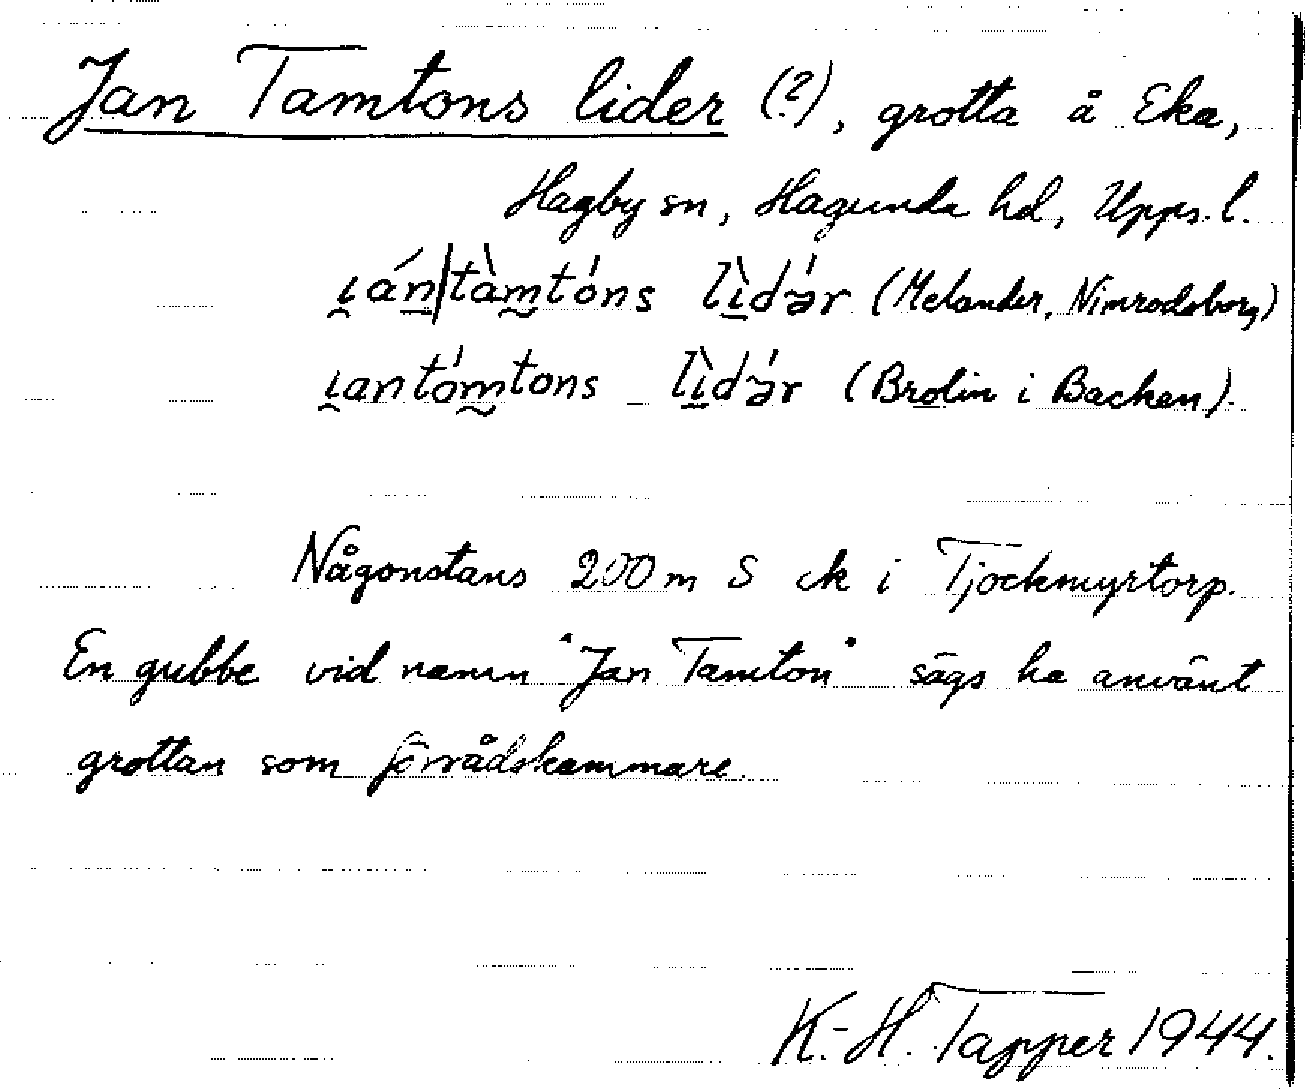 Jan Tamtons lider (?), grotta å Eka,
Hagby sn, Hagunda hd, Upps. l.
ı̯án|tàmtóns lìdə́r (Melander, Nimrodsborg)
ı̯antómtons lìdə́r (Brolin i Backen).
Någonstans 200 m S ck i Tjockmyrtorp.
En gubbe vid namn "Jan Tamton" sägs ha använt
grottan som förrådskammare.
K.-H. Tapper 1944.